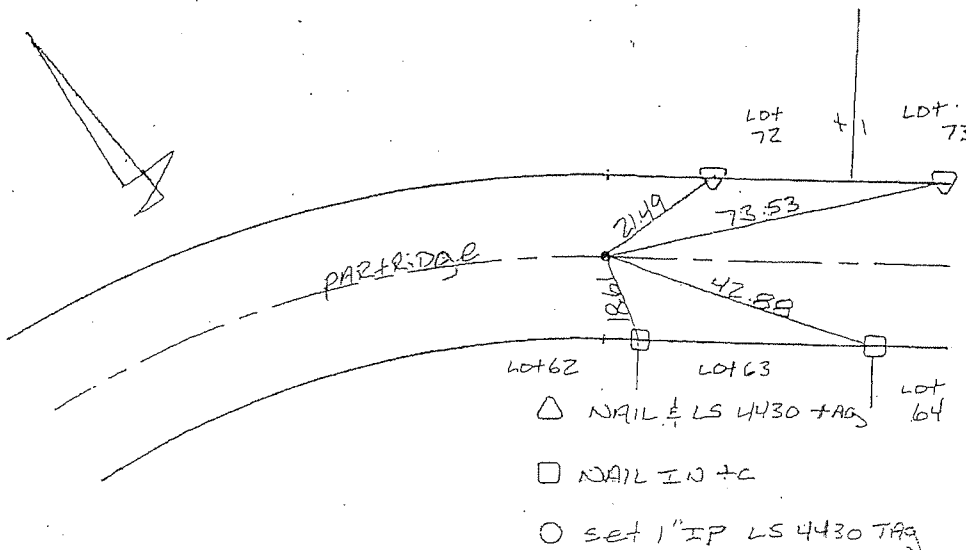 LOT
72
LOT
73
21.49
73.53
PARTRIDGE
42.88
18.61
LOT 62
LOT 63
LOT
64
NAIL & LS 4430 TAG
NAIL IN TC
SET 1" IP LS 4430 TAG